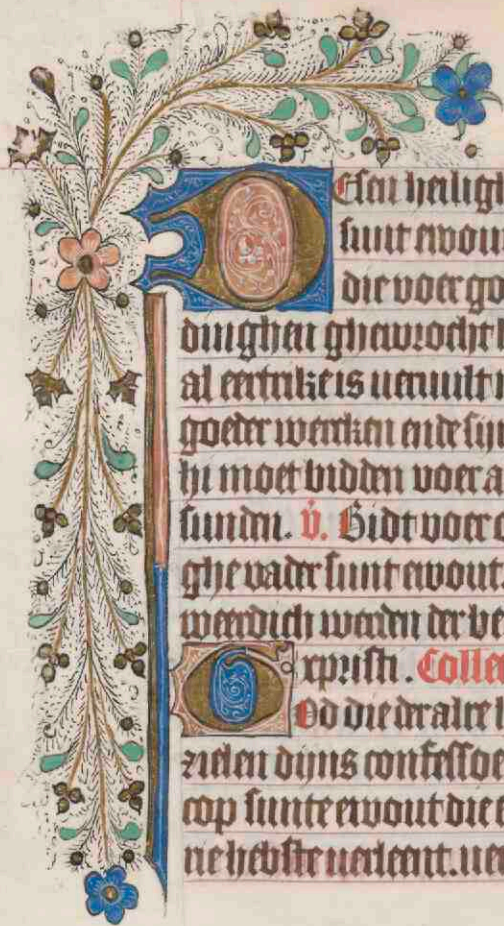 Desen heiligh
sunt ewou
die voer go
dinghen ghewrocht
al eertrike is veruult
goeder wercken ende sijn
hi moet bidden voer a
sunden. v. Bidt voer
ghe vader sunt ewout
weerdich werden der be
xpristi. Colle
God die der alre
zielen dijns confessoe
cop sunte ewout die
ne hebste verleent. ue